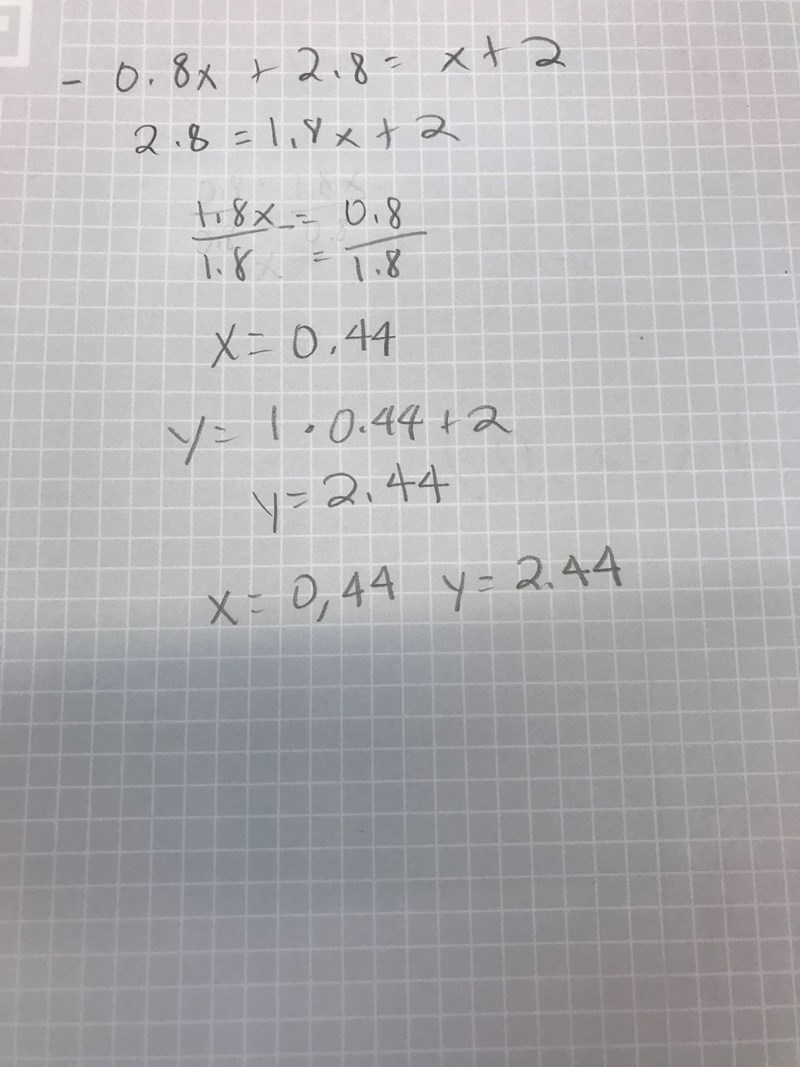 - 0.8x + 2.8 = x + 2
2.8 = 1.8x + 2
1.8x = 0.8
1.8 = 1.8
x = 0.44
y = 1 • 0.44 + 2
y = 2.44
x = 0,44 y = 2.44